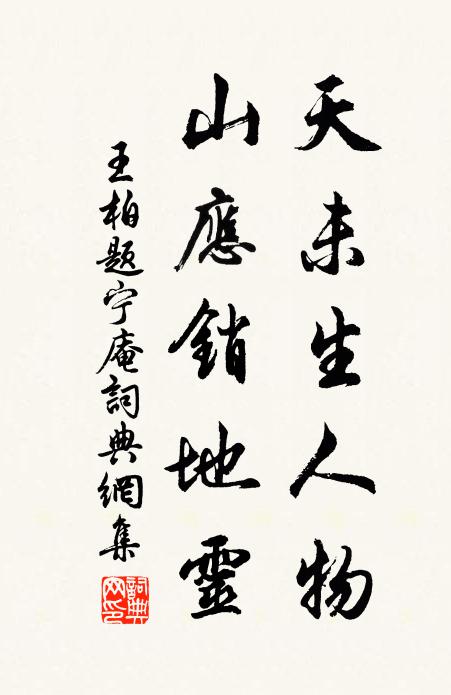 天未生人物
山應銷地靈
王柏题宁庵詞典網集
詞典網印